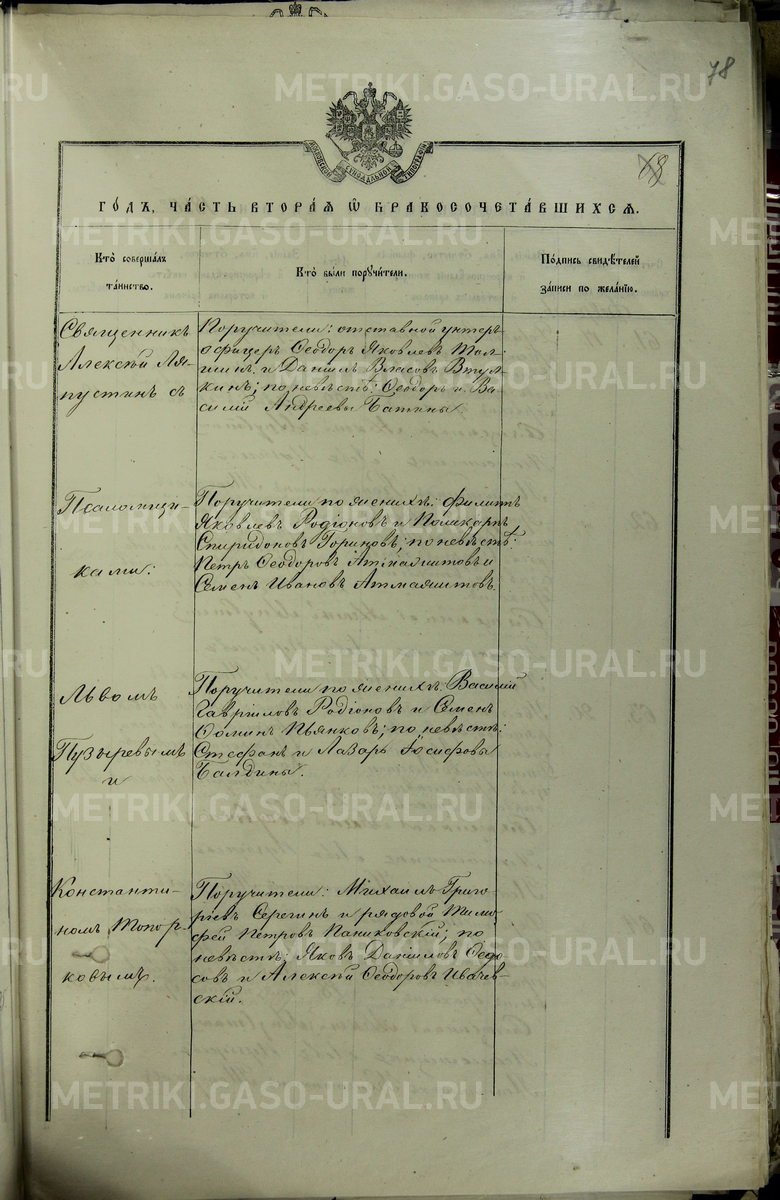 78
METRIKI.GASO-URAL.RU
68
МОСКОВСКОЙ СѴНОДАЛЬНОЙ ТИПОГРАФІИ
ГО́ДЪ, ЧА́СТЬ ВТОРА́Я Ѿ БРАКОСОЧЕТА́ВШИХСЯ.
Кто̀ совершалъ
та́инство.
Кто̀ бы́ли поручи́тели.
По́дпись свидѣ́телей
за́писи по жела́нію.
Священникъ
Алексѣй Ля-
пустинъ съ
Поручители: отставной унтеръ
офицеръ Ѳеодоръ Яковлевъ
и Даніилъ Власовъ Втул-
кинъ; по невѣстѣ: Ѳеодоръ и Ва-
силій Андреевы Батины
Псаломщи-
ками:
Поручители по женихѣ: Филиппъ
Яковлевъ Родіоновъ и Поликарпъ
Спиридоновъ Гориновъ; по невѣстѣ:
Петръ Ѳеодоровъ и
Семенъ Ивановъ
Львомъ
Пузыревымъ
и
Поручители по женихѣ: Василій
Гавріиловъ Родіоновъ и Семенъ
Ѳоминъ Пьянковъ; по невѣстѣ:
Стефанъ и Лазарь Іосифовы
Балдины.
Константи-
номъ Топор-
ковымъ.
Поручители: Михаилъ Григо-
ріевъ Серегинъ и рядовой Тимо-
фей Петровъ Паниковскій; по
невѣстѣ: Яковъ Даніиловъ Ѳедо-
совъ и Алексѣй Ѳеодоровъ Ивачев-
скій.